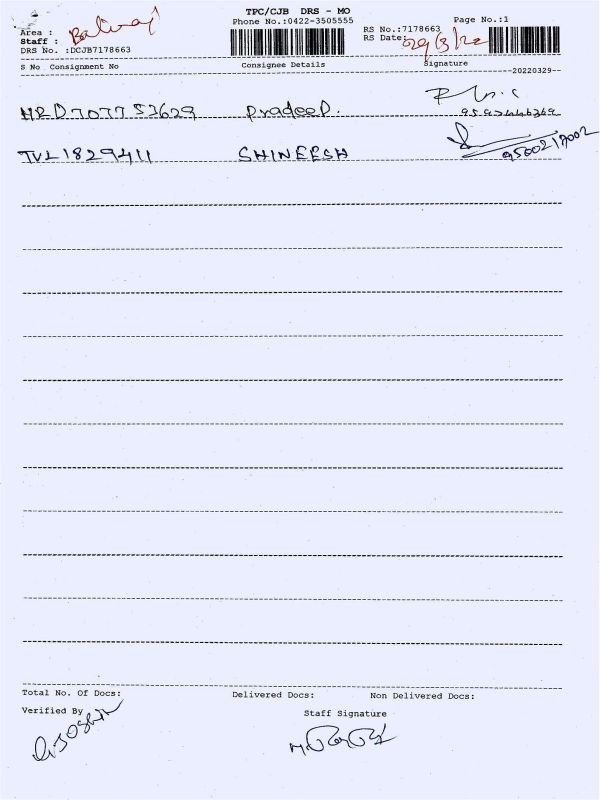 TPC/CJB DRS - MO
Phone No.:0422-3505555
Page No.:1
Area :
Staff :
DRS No. :DCJB7178663
RS No.:7178663
RS Date: 29/3/22
S No Consignment No Consignee Details Signature
20220329
HRD707753629 Pradeep.
TVL1829411 SHINEESH 9500217002
Total No. Of Docs: Delivered Docs: Non Delivered Docs:
Verified By
Staff Signature